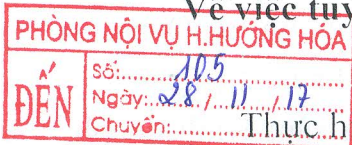 Về việc tuy
PHÒNG NỘI VỤ H.HƯỚNG HÓA
ĐẾN
Số:.......105.......
Ngày:..28../..11../..17..
Chuyển:.......
Thực h